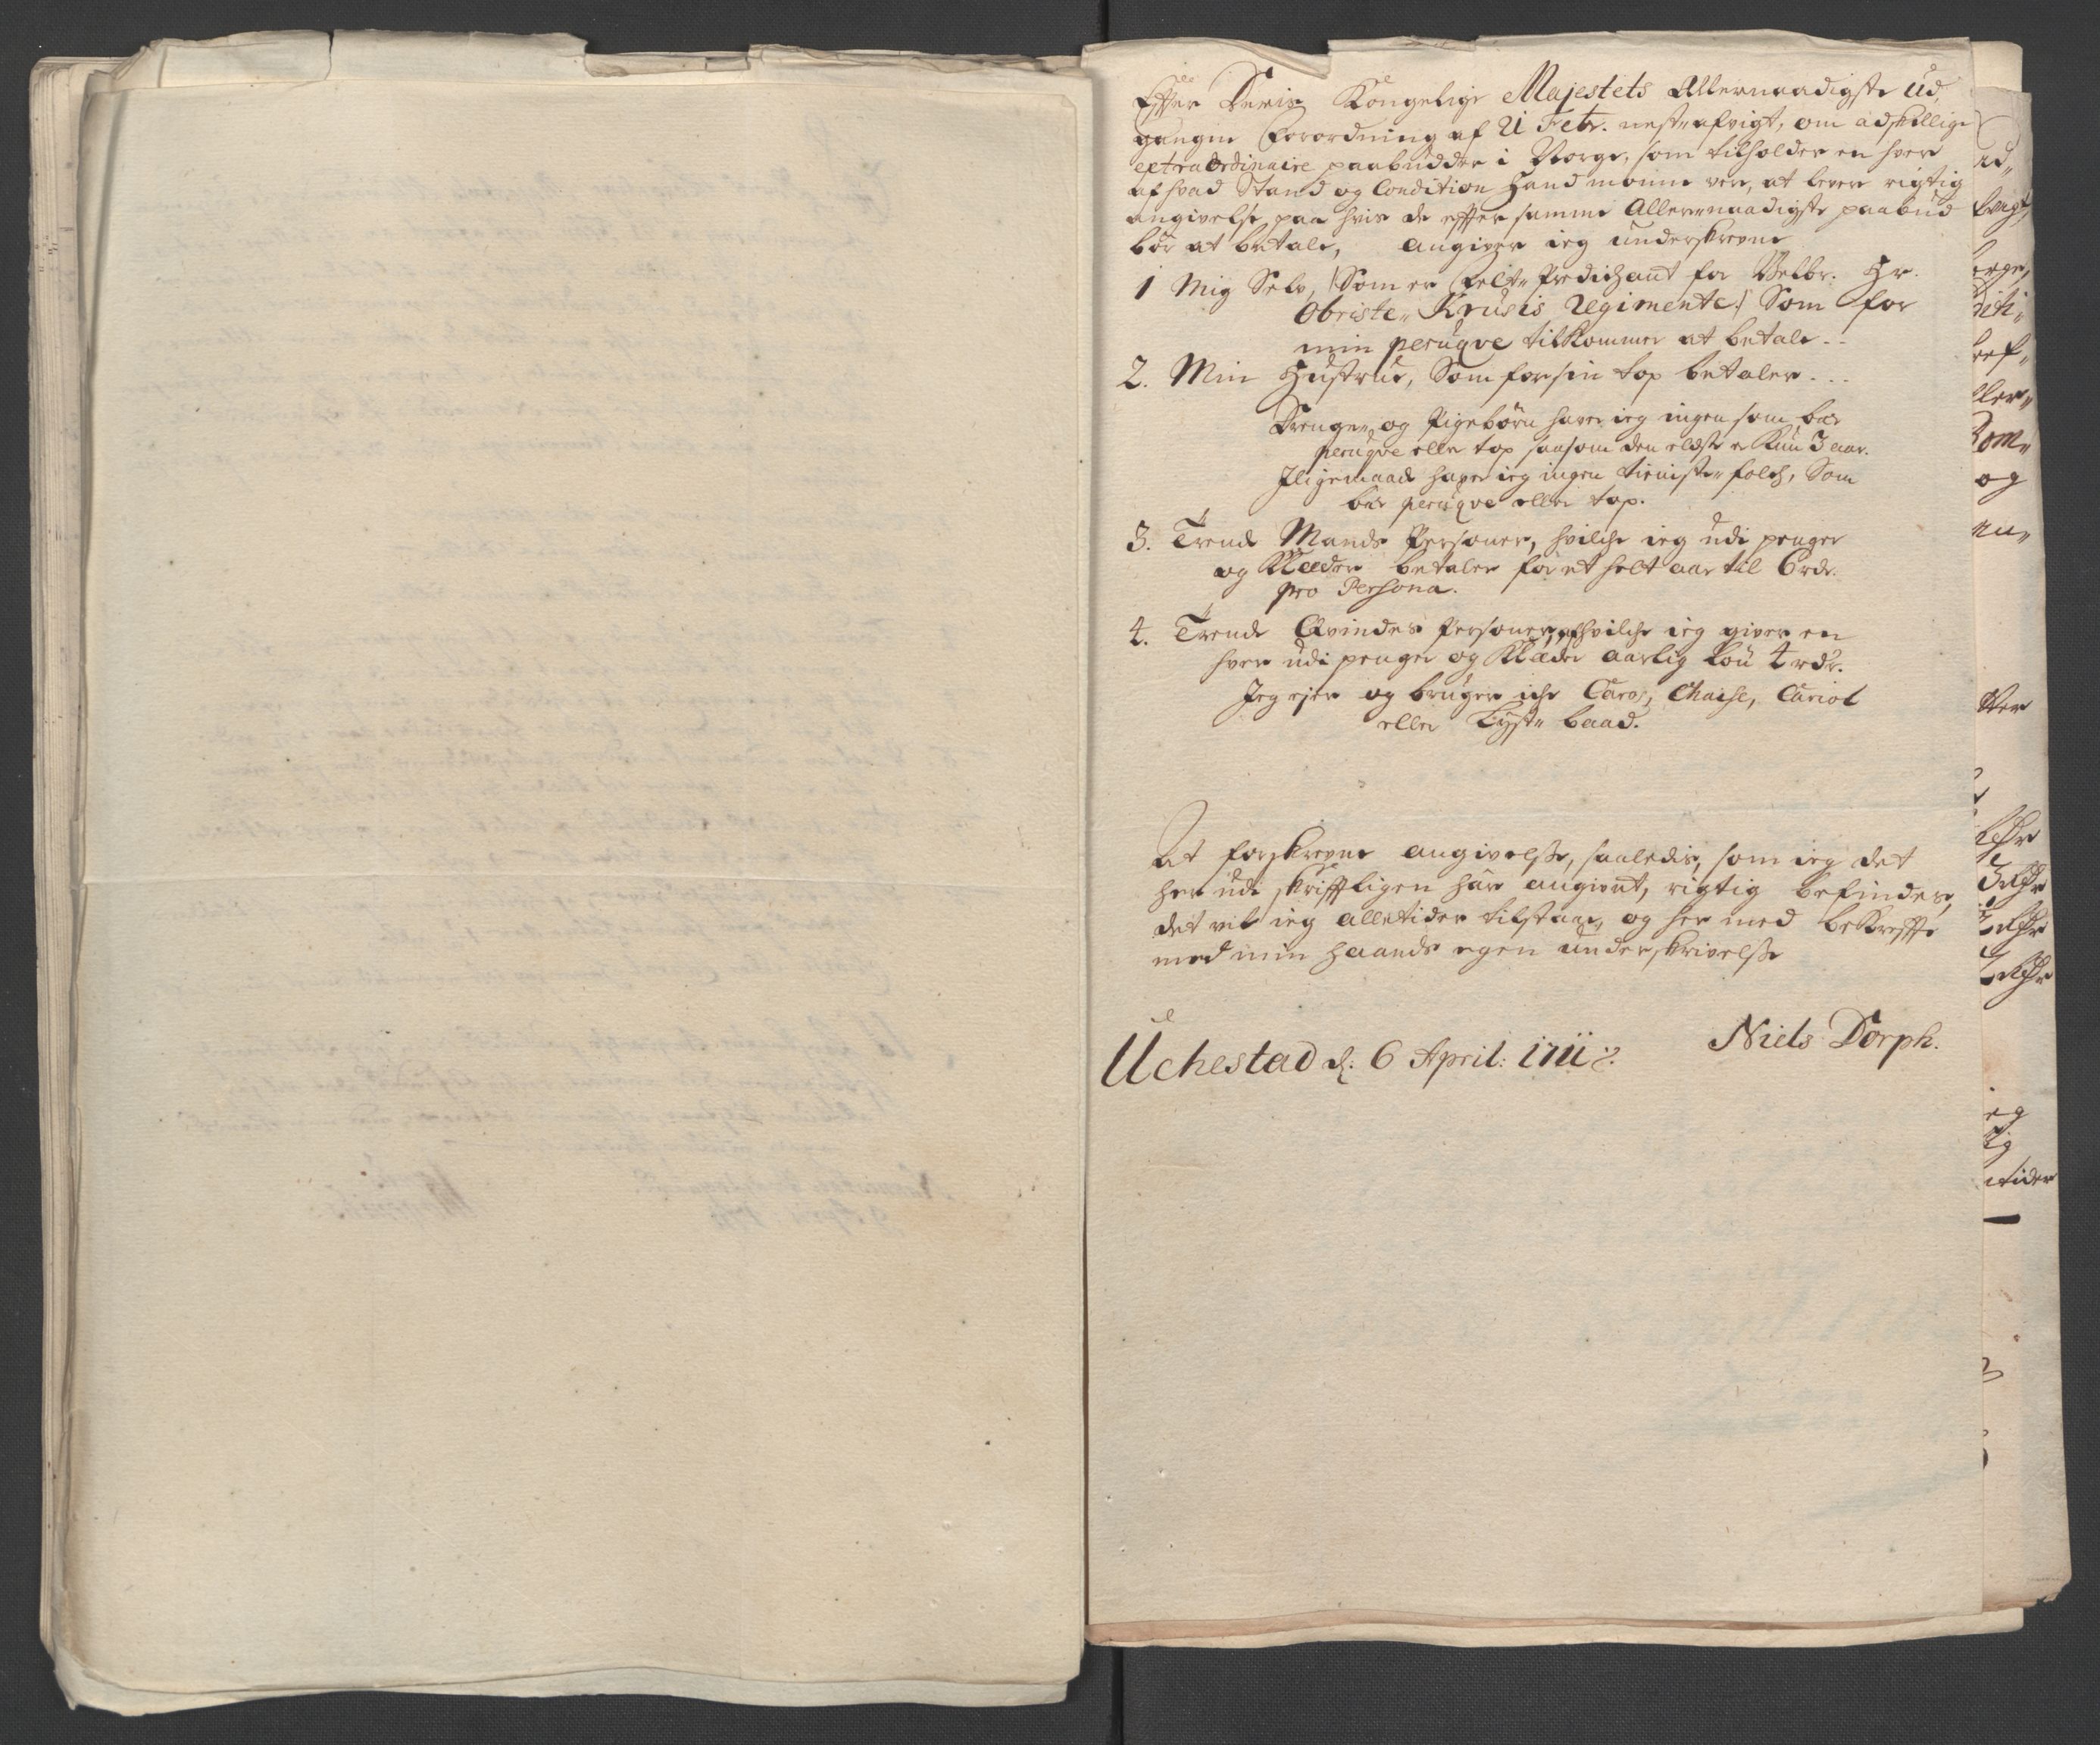 Effter Deris Kongelige Majestets Allernaadigste ud,
gangne Forordning af 21 Febr. nest afvigt, om adskillige
extraordinaire paabudder i Norge, som tilholder en hver
af hvad Stand og Condition Hand monne vere, at levere rigtig
angivelse, paa hvis de effter samme Allernaadigste paabud
bör at betale, angiver ieg underskrevne
1 Mig Selv, /: Som er Felt-Predichant for Velbr. Hr.
Obriste Krusis Regimente :/ Som for
min peruqve tilkommer at betale ..
2. Min Hustrue, Som for sin top betaler ...
Drenge- og Pigebörn haver ieg ingen som bær
peruqve eller top saasom den eldste er Kun 3 aar.
Iligemaade haver ieg ingen tieniste-folch, Som
bær peruqve eller top.
3. Trende Mands Personer, hvilche ieg udi penger
og Klæder betaler for et helt aar til 6 rdr.
pro Persona.
4. Trende Qvindes Personer, af hvilche ieg giver en
hver udi penger og Klæder aarlig lön 4 rdr.
Jeg ejer og bruger iche Caros, Chaise, Cariol
eller Lyst- baad.
At forskrevne angivelse, saaledis, som ieg det
her udi skrifftligen har angivet, rigtig befindes,
det vil ieg alletider tilstaae, og her med bekreffte
med min haands egen underskrivelse
Uchestad d: 6 April: 1711
Niels Dorph.